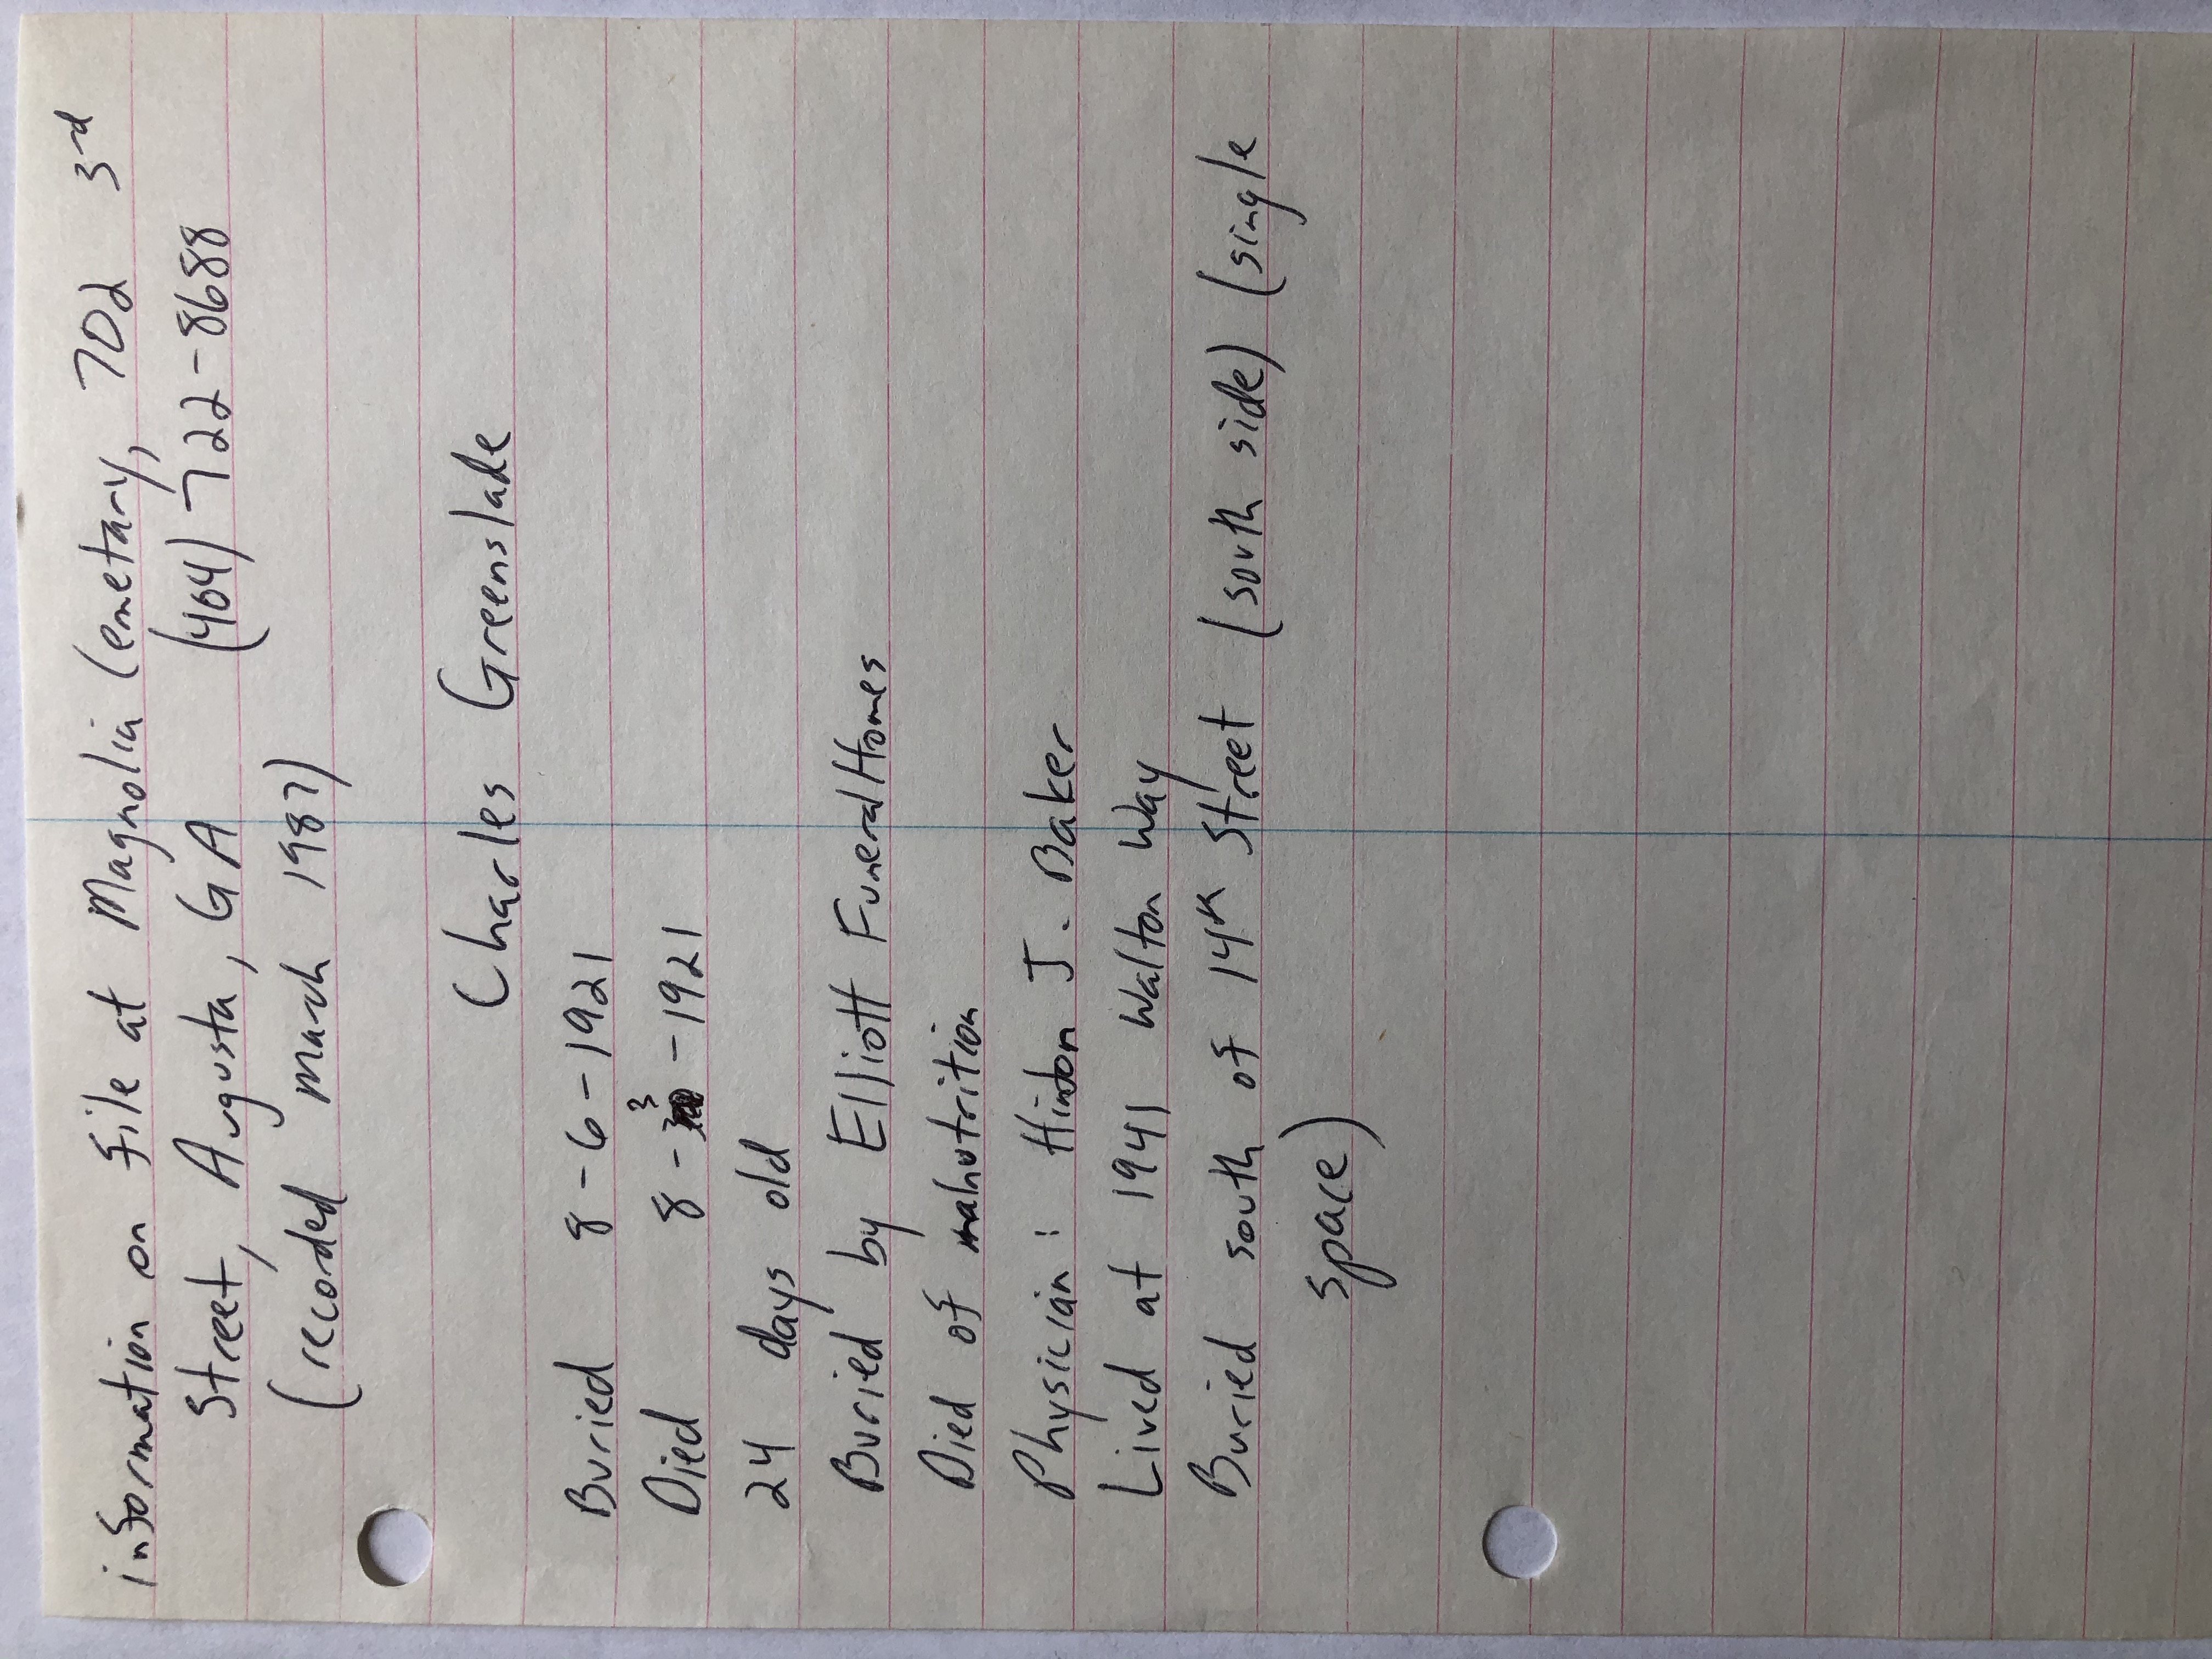 information on file at Magnolia Cemetary, 702 3rd
Street, Augusta, GA (404) 722-8688
(recorded March 1987)
Charles Greenslade
Buried 8-6-1921
Died 8-3-1921
24 days old
Buried by Elliott Funeral Homes
Died of malnutrition
Physician: Hinton J. Baker
Lived at 1941 Walton Way
Buried south of 14th Street (south side) (single
space)